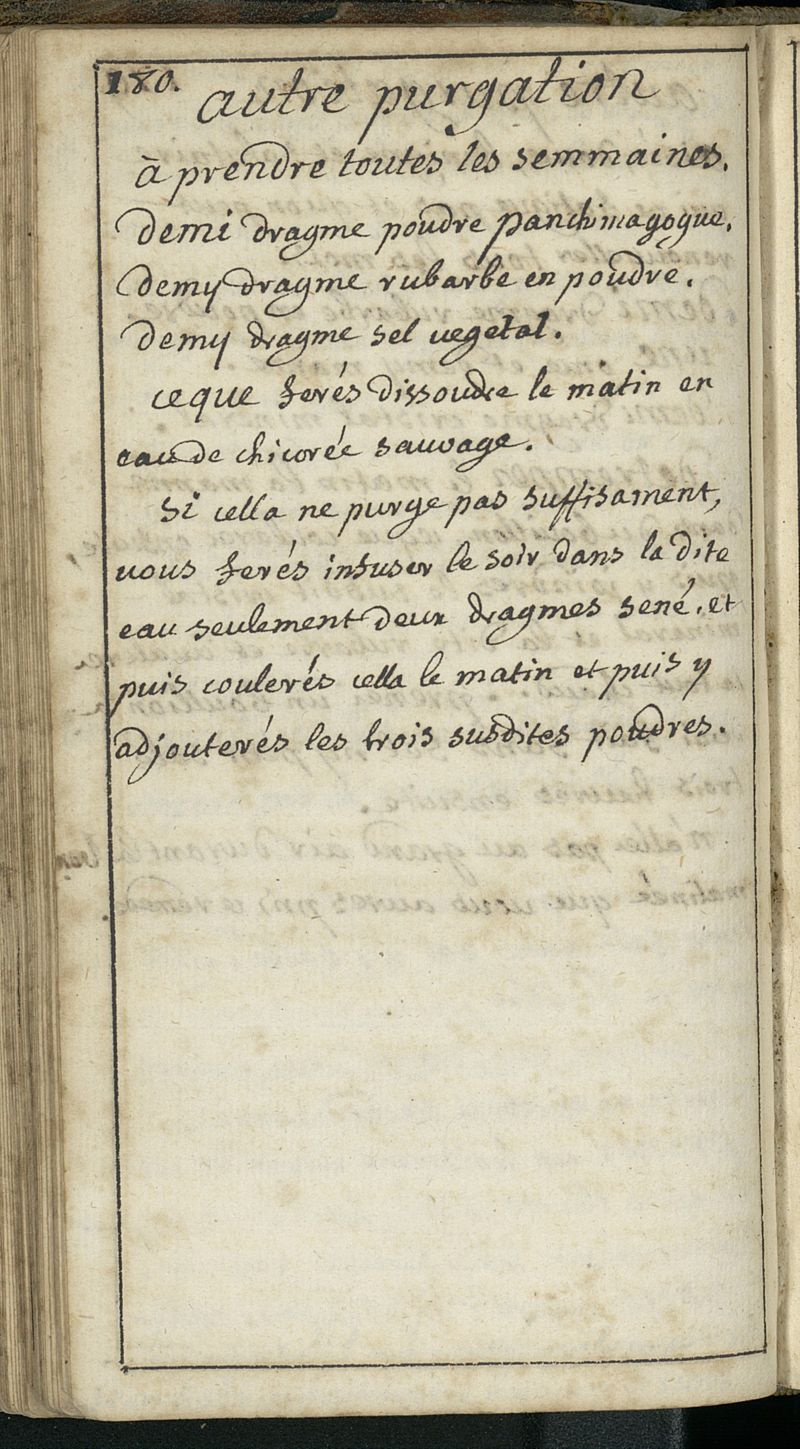 180.
autre purgation
à prendre toutes les semmaines.
demi dragme poudre panchimagogue.
demy dragme rubarbe en poudre.
demy dragme sel vegetal.
ce que ferés dissoudre le matin en
eau de chicorée sauvage.
si cella ne purge pas suffisament,
vous ferés infuser le soir dans la dite
eau seulement deux dragmes sené. et
puis coulerés cella le matin et puis y
adjouterés les trois susdites poudres.